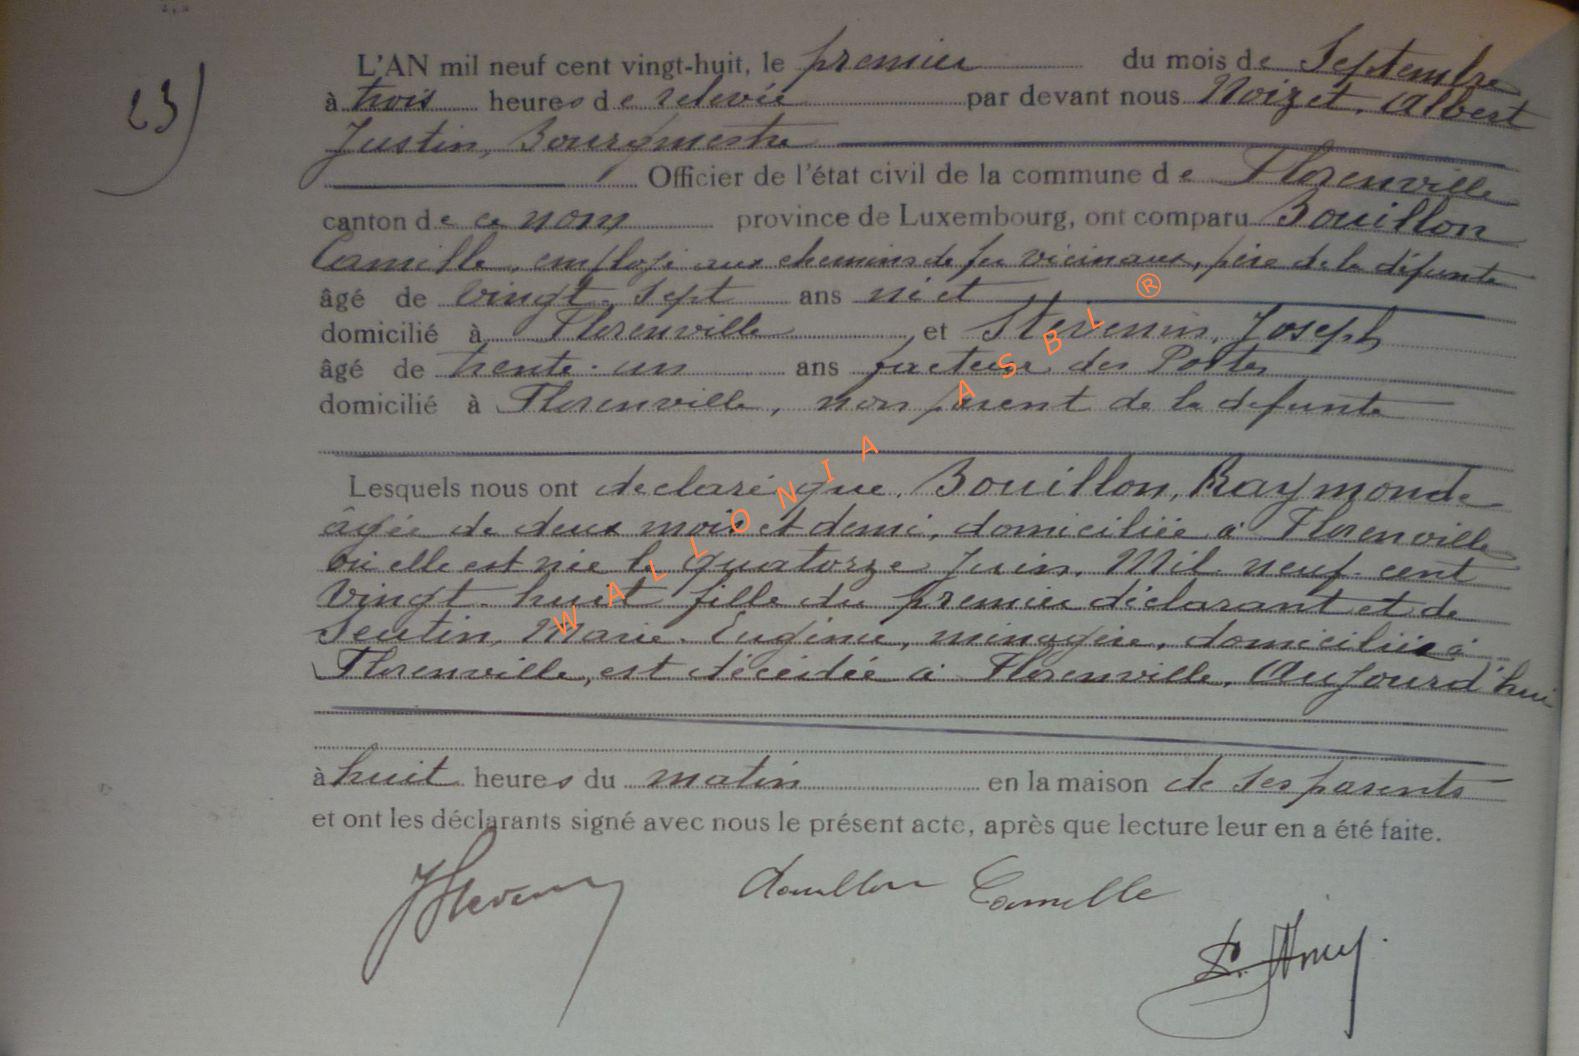 23)
L'AN mil neuf cent vingt-huit, le premier du mois de Septembre
à trois heures de relevée par devant nous Noizet, Albert
Justin, Bourgmestre
Officier de l'état civil de la commune de Florenville
canton de ce nom province de Luxembourg, ont comparu Bouillon
Camille, employé aux chemins de fer vicinaux, père de la défunte
âgé de vingt-sept ans né et
domicilié à Florenville et Stevenin, Joseph
âgé de trente-un ans facteur des Postes
domicilié à Florenville, non parent de la défunte
Lesquels nous ont déclaré que, Bouillon, Raymonde
âgée de deux mois et demi, domiciliée à Florenville
où elle est née le quatorze Juin, Mil neuf cent
Vingt-huit fille du premier déclarant et de
Marie-Eugénie, ménagère, domiciliée à
Florenville, est décédée à Florenville, Aujourd'hui
à huit heures du matin en la maison de ses parents
et ont les déclarants signé avec nous le présent acte, après que lecture leur en a été faite.
Bouillon Camille
WALLONIA ASBL ®